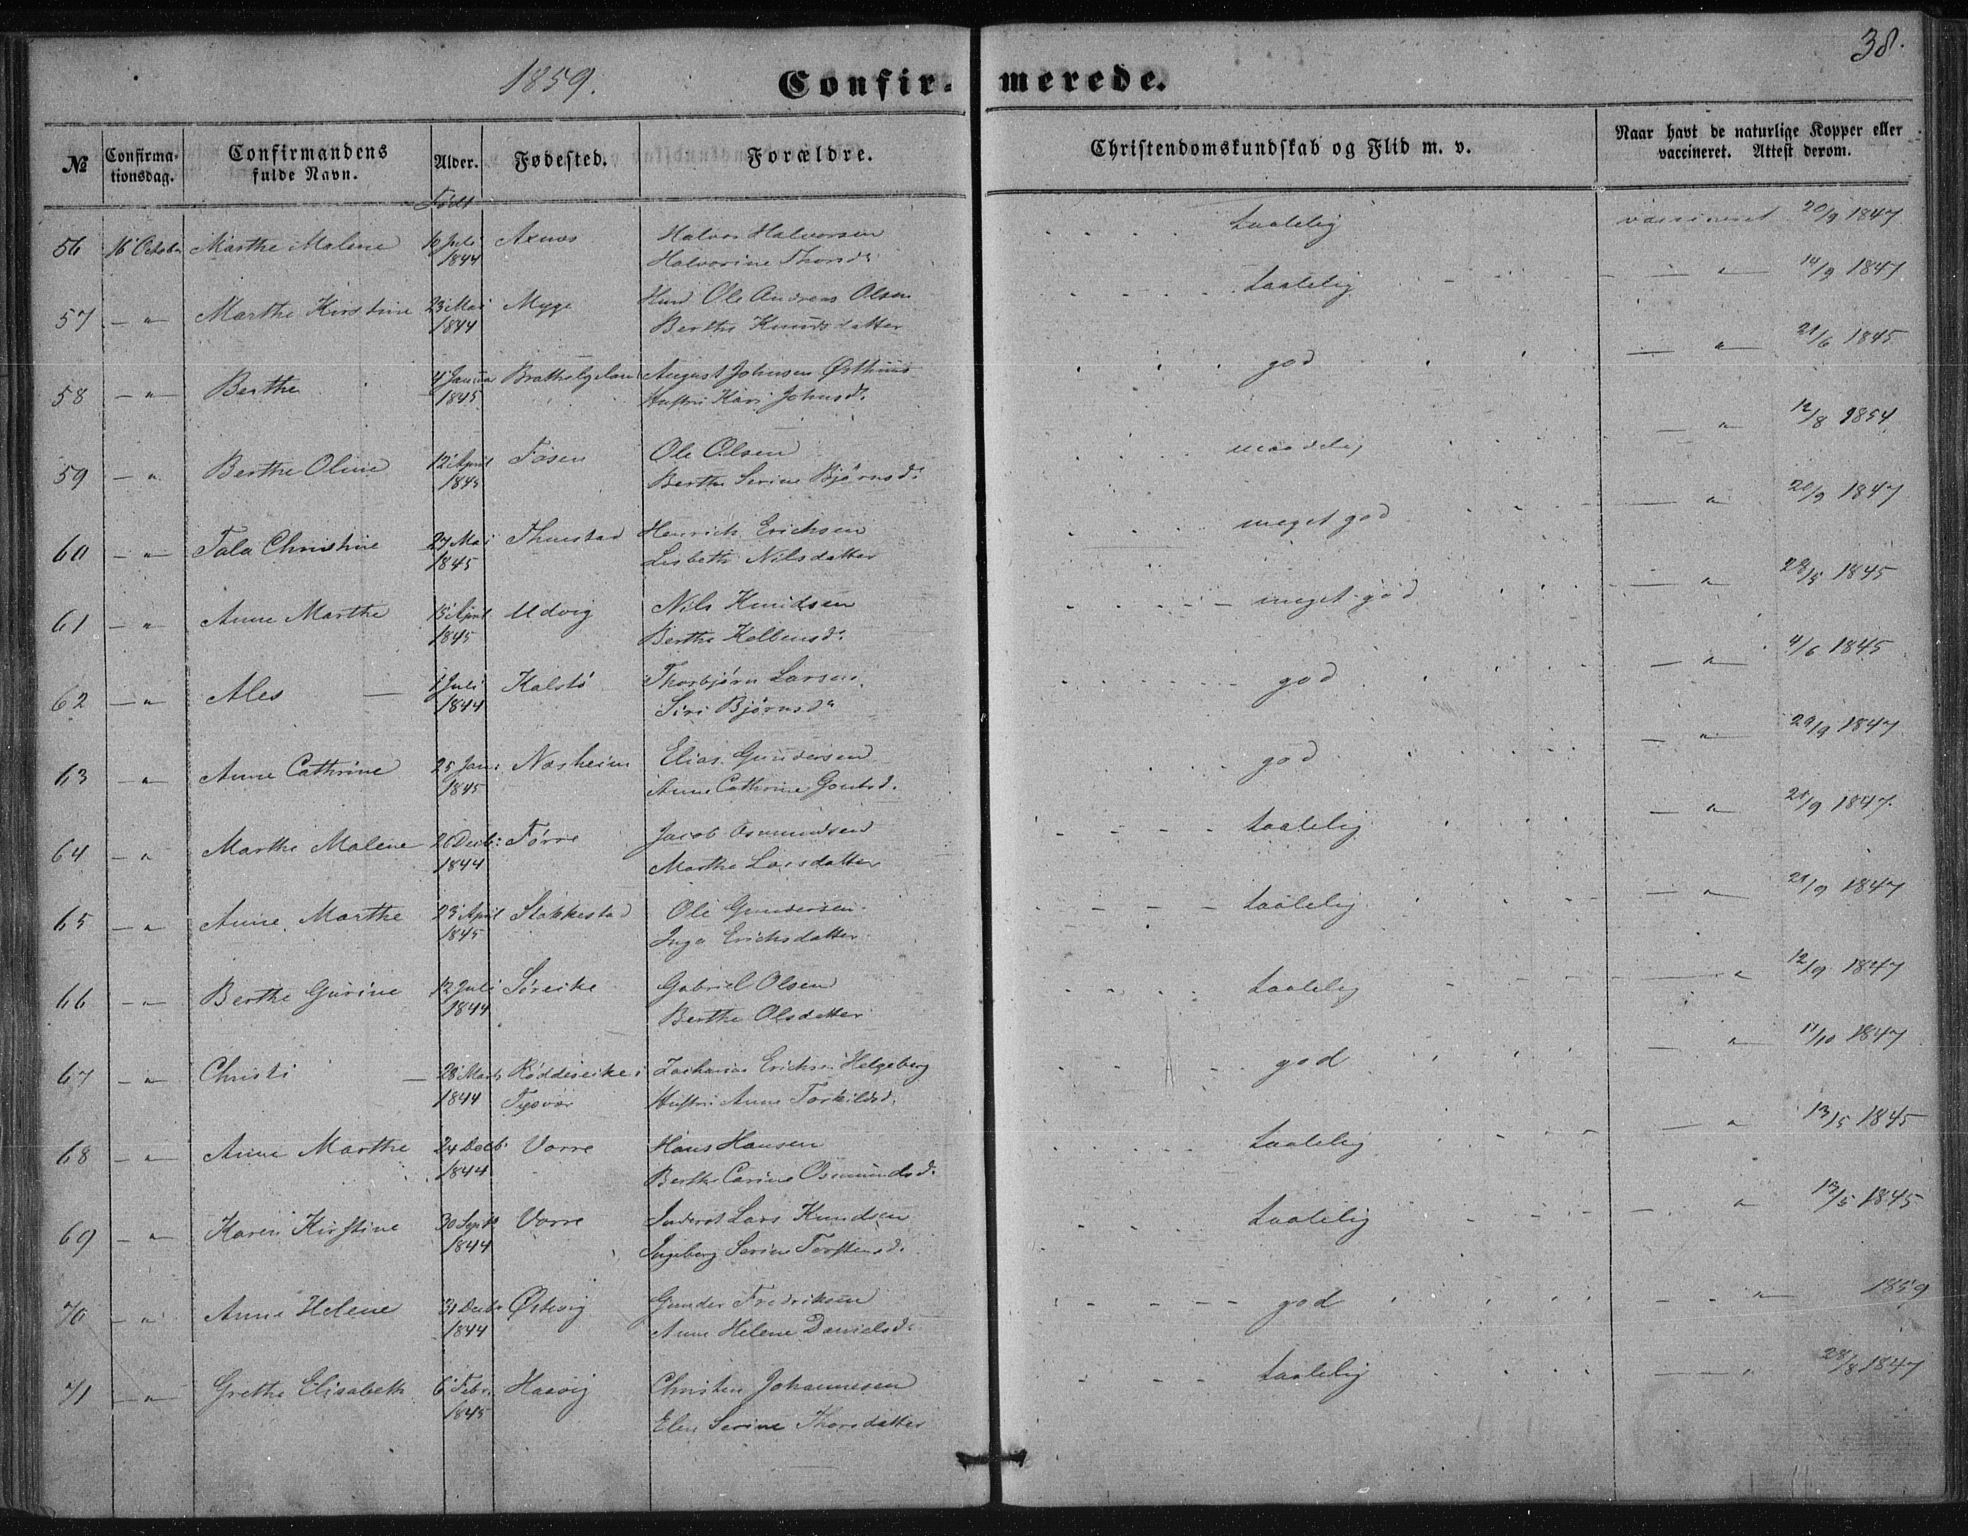 1859.
Confirmerede.
38.
№
Confirma-
tionsdag.
Confirmandens
fulde Navn.
Alder.
Fødested.
Forældre.
Christendomskundskab og Flid m. v.
Naar havt de naturlige Kopper eller
vaccineret. Attest derom.
Født
56 16 Octobr Marthe Malene Juli Axnæs Halvor Halvorsen taalelig vaccineret 20/9 1847
1844 Halvorine Thorsd:
57 — " Marthe Kirstine 23 Mai Myge Ole Andreas Olsen taalelig — " — 14/9 1847
1844 Berthe Knudsdatter
58 — " Berthe 4 Janua August Johnsen god — " — 21/6 1845
1845 Hustru Kari Johnsd.
59 — " Berthe Oline 12 April Føsen Ole Olsen maadelig — " — 12/8 1854
1845 Berthe Serine Bjørnsd:
60 — " Tala Christine 27 Mai Thuestad Henrich Erichsen meget god — " — 20/9 1847
1845 Lisbeth Nilsdatter
61 — " Anne Marthe 15 April Udvig Nils Knudsen meget god — " — 28/5 1845
1845 Berthe Kolbensd:
62 — " Ales — 1 Juli Kalstø Thorbjørn Larsen god — " — 4/6 1845
1844 Siri Bjørnsd:
63 — " Anne Cathrine 25 Jan: Næsheim Elias Gundersen god — " — 29/9 1847
1845 Anne Cathrine Gautsd.
64 — " Marthe Malene Decb: Førre Jacob Osmundsen taalelig — " — 21/9 1847
1844 Marthe Larsdatter
65 — " Anne Marthe 23 April Stakkestad Ole Gundersen taalelig — " — 21/9 1847
1845 Inga Erichsdatter
66 — " Berthe Gurine 12 Juli Søreike Gabriel Olsen taalelig — " — 12/9 1847
1844 Berthe Olsdatter
67 — " Christi — 28 Marts Røddeseike i Zacharias Erichsen Helgeberg god — " — 11/10 1847
1844 Tysvær Hustru Anne Torkildsd.
68 — " Anne Marthe 24 Decb: Vorre Hans Hansen taalelig — " — 13/5 1845
1844 Berthe Carine Osmundsd.
69 — " Karen Kirstine 30 Septb Vorre Inderst Lars Knudsen taalelig — " 13/5 1845
1844 Ingeborg Serine Torstensd.
70 — " Anne Helene 31 Decbr Østevig Gunder Fredriksen god — " — 1859
1844 Anne Helene Danielsd:
71 — " Grethe Elisabeth 6 Febr. Haavig Christen Johannesen taalelig — " 28/8 1847
1845 Elen Serine Thorsdatter